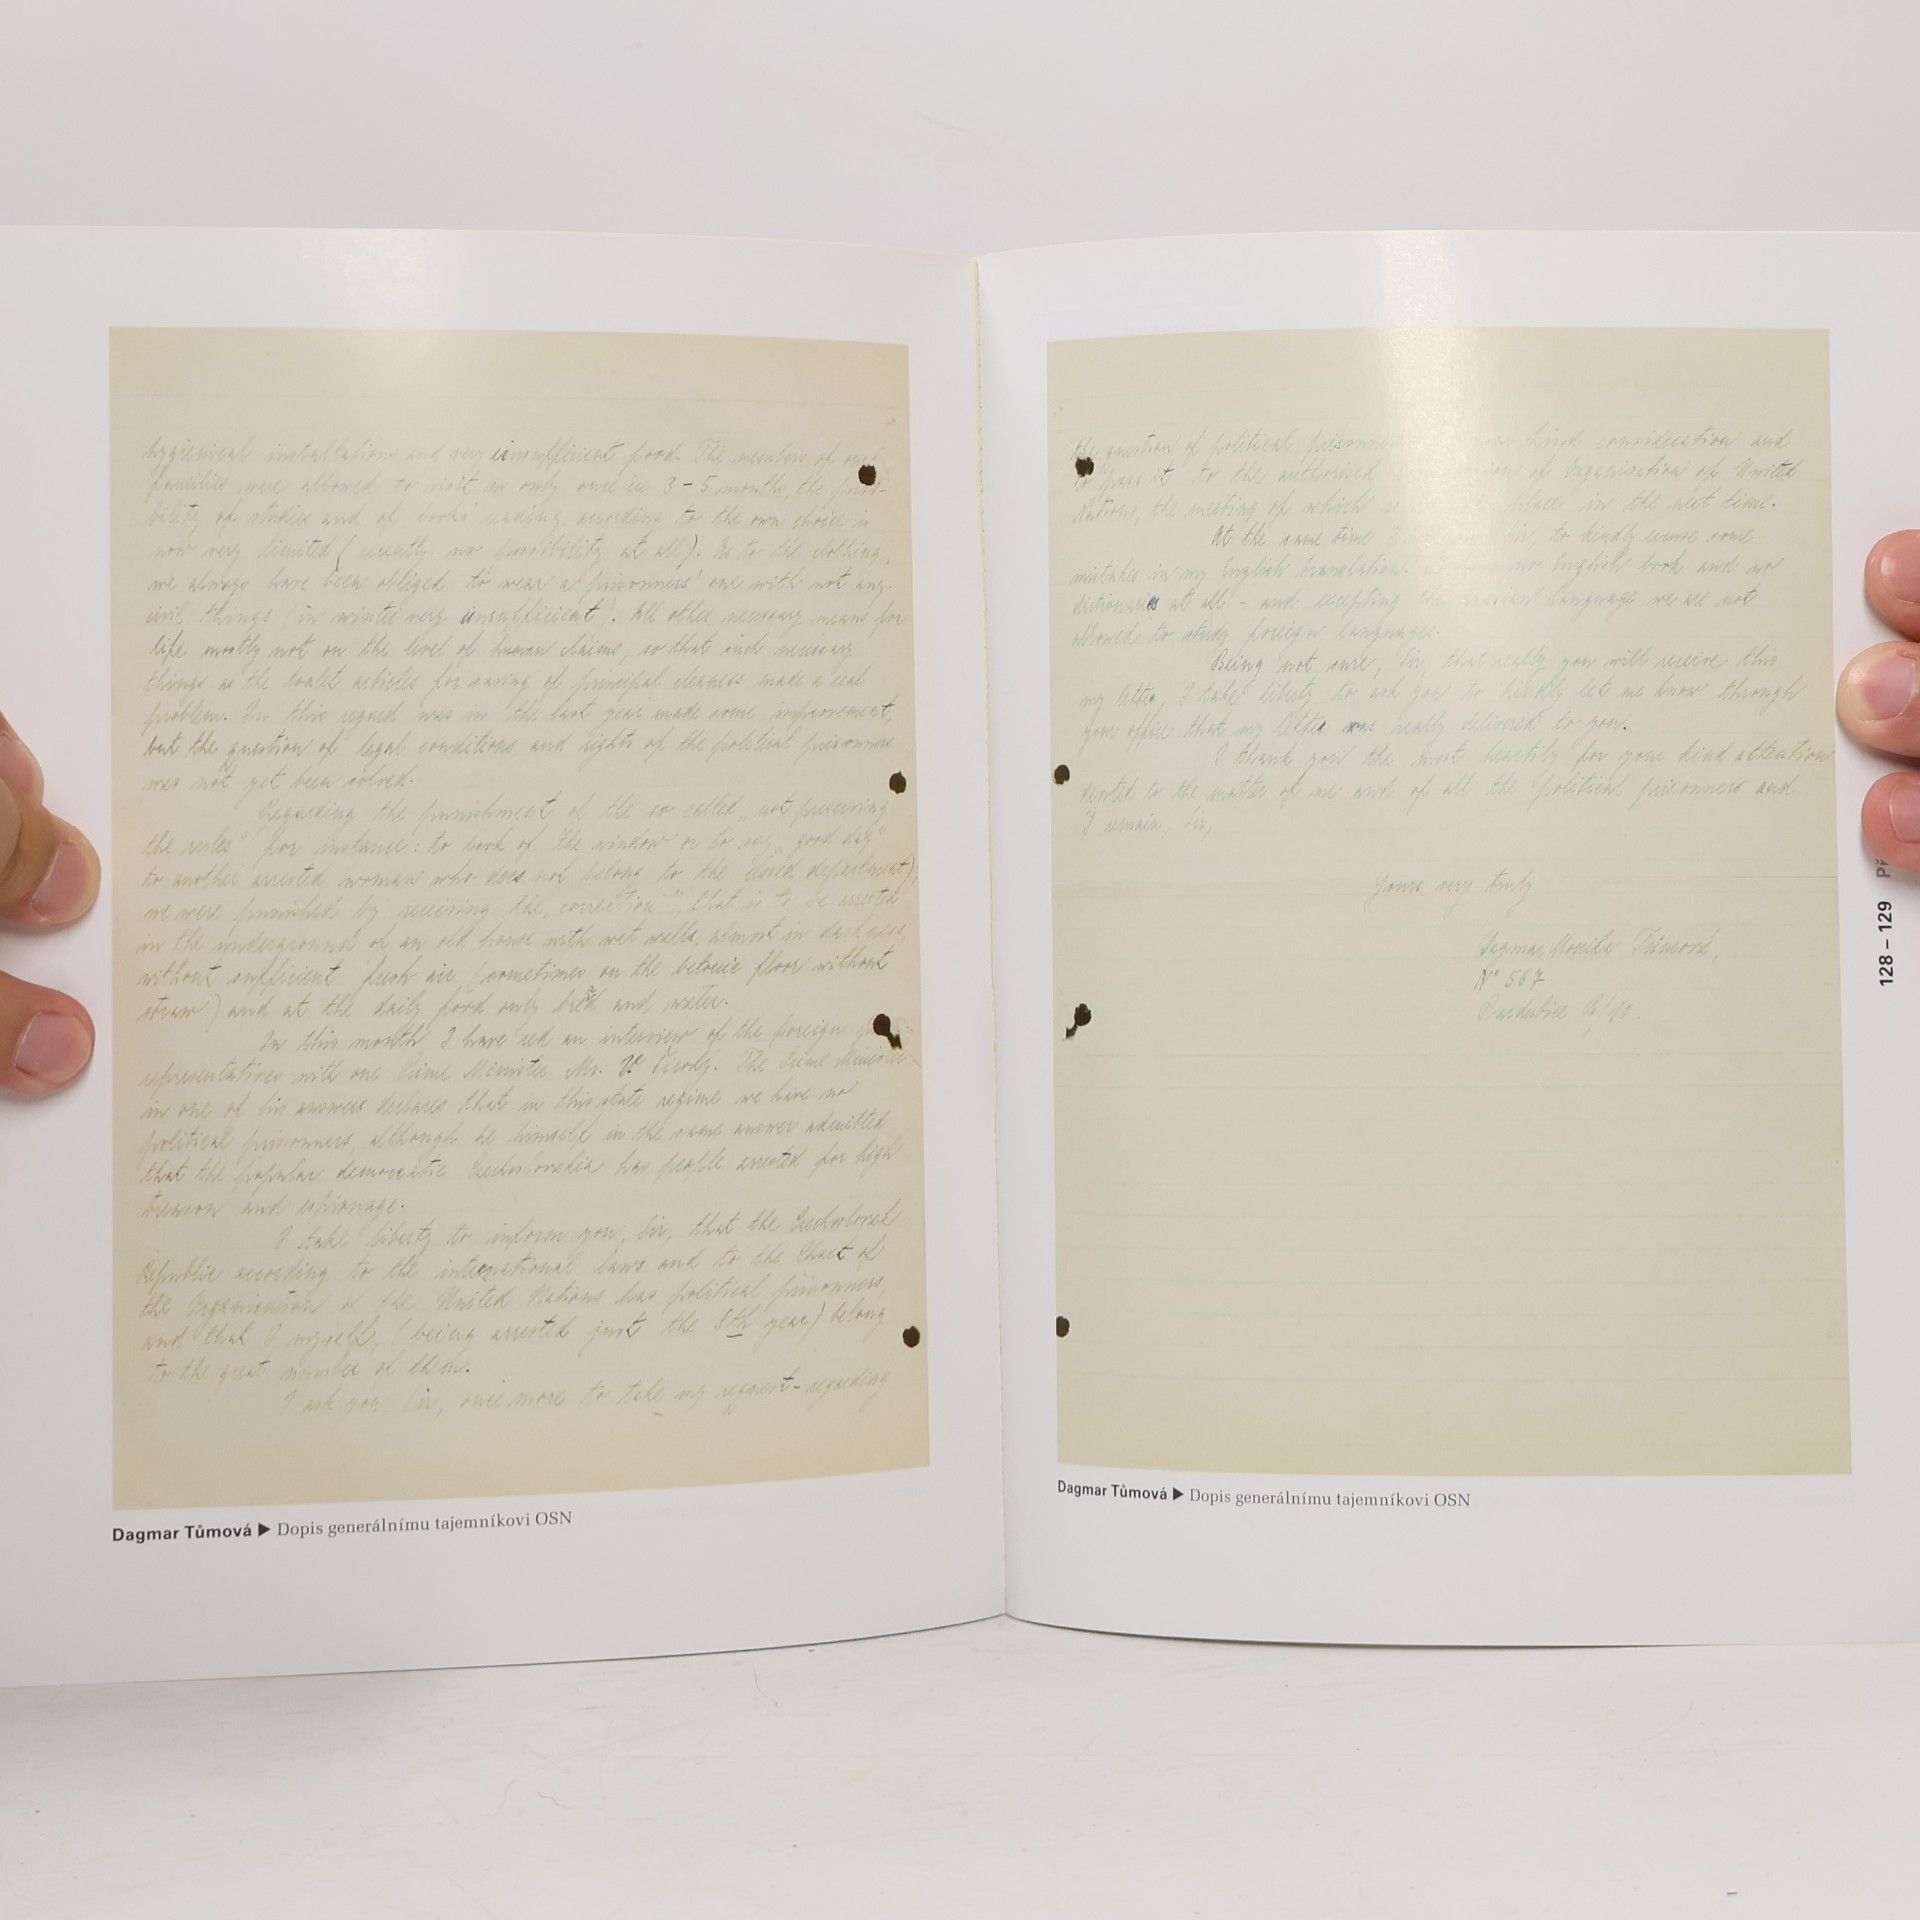 hygienical installations and very unsufficient food. The members of our
families were allowed to visit us only once in 3-5 months, the possi-
bility of studies and of books' reading according to the own choice is
now very limited (recently no possibility at all). As to the clothing,
we always have been obliged to wear a prisonners' one with not any
civil things (in winter very unsufficient). All other necessary means for
life mostly not on the level of human claims, so that such necessary
things as the toalet articles for saving of principal cleaness made a real
problem. In this regard was in the last year made some improvement,
but the question of legal conditions and rights of the political prisonners
was not yet been solved.
Regarding the punishment of the so called „not preserving
the rules" for instance: to look of the window or to say „good day"
to another arrested woman who does not belong to the closed department),
we were punished by receiving the „correction", that is to be arrested
in the underground of an old house with wet walls, almost in darkness,
without sufficient fresh air, (sometimes on the betonie floor without
straw) and at the daily food only bred and water.
In this month I have red an interview of the foreign
representatives with our Prime Minister Mr. V. Široký. The Prime Minister
in one of his answers declares that in this state regime we have no
political prisonners, although he himself in the same answer admitted
that the popular democratic Czechoslovakia has people arrested for high
treason and espionage.
I take liberty to inform you, Sir, that the Czechoslovak
Republic according to the international laws and to the Chart of
the Organisation of the United Nations has political prisonners,
and that I myself, (being arrested just the 8th year) belong
to the great number of them.
I ask you, Sir, once more to take my request - regarding
Dagmar Tůmová ▶ Dopis generálnímu tajemníkovi OSN
the question of political prisonners kind consideration and
to pass it to the authorised of Organisation of United
Nations, the meeting of which place in the next time.
At the same time I Sir, to kindly excuse some
mistakes in my English translation. no English book and no
dictionaries at all - and excepting the russian language we are not
allowed to study foreign languages.
Being not sure, Sir, that really you will receive this
my letter, I take liberty to ask you to kindly let me know through
your office that my letter was really delivered to you.
I thank you the most heartily for your kind attention
devoted to the matter of me and of all the political prisonners and
I remain, Sir,
Yours very truly
Dagmar Tůmová,
N° 567
Pardubice
Dagmar Tůmová ▶ Dopis generálnímu tajemníkovi OSN
128 – 129